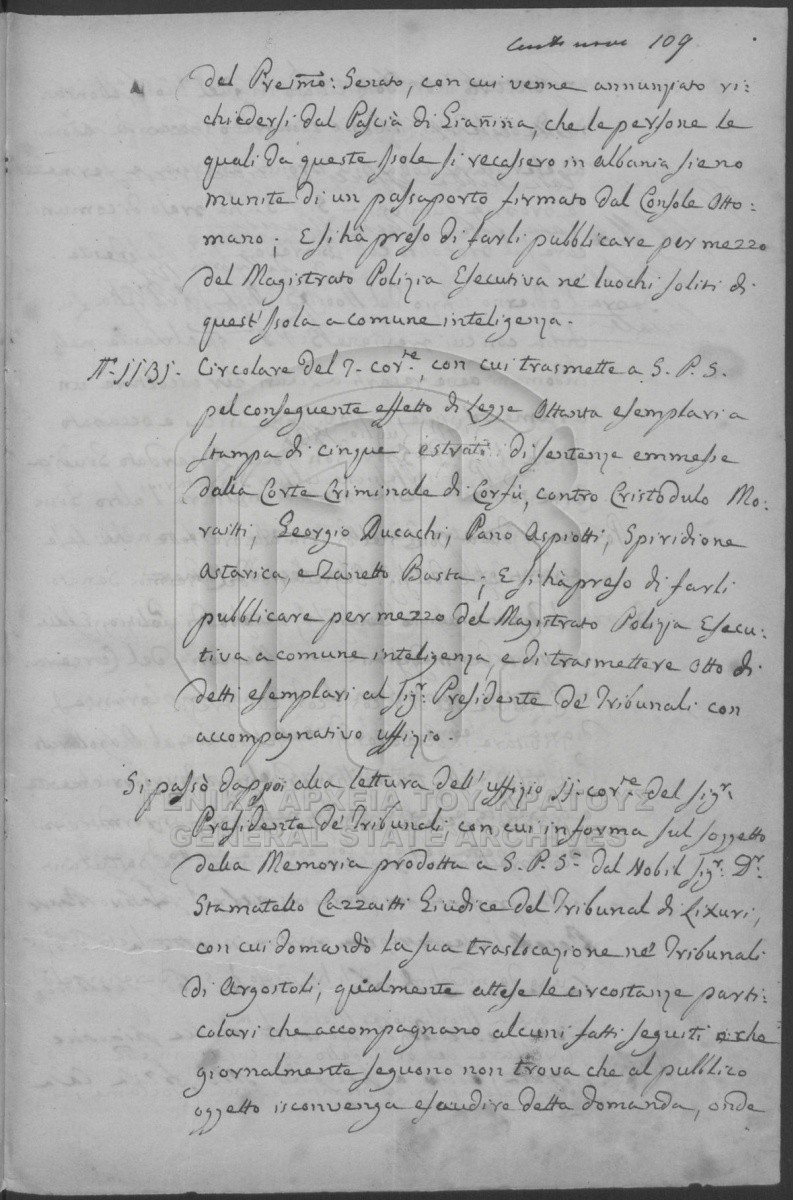 Cento nove 109
del Presmo: Senato, con cui venne annunziato ri:
chiedersi dal Pascià di Giañina, che le persone le
quali da queste Isole si recassero in Albania sieno
munite di un passaporto firmato dal Console Otto:
mano; E si hà preso di farli pubblicare per mezzo
del Magistrato Polizia Esecutiva nè luochi soliti di
quest'Isola a comune inteligenza.
N. 1131. Circolare del 7. corte, con cui trasmette a S. P. S.
pel conseguente effetto di Legge Ottanta esemplari a
stampa di cinque estratti di sentenze emmesse
dalla Corte Criminale di Corfù, contro Cristodulo Mo:
raitti, Georgio Ducachi, Pano Aspiotti, Spiridione
Astarica, e Zanetto Basta; E si hà preso di farli
pubblicare per mezzo del Magistrato Polizia Esecu:
tiva a comune inteligenza, e di trasmettere Otto di
detti esemplari al Sigr. Presidente de' Tribunali con
accompagnativo uffizio.
Si passò dappoi alla lettura dell'uffizio 11. corte del Sigr.
ΓΕΝΙΚΑ ΑΡΧΕΙΑ ΤΟΥ ΚΡΑΤΟΥΣ
Presidente de' Tribunali con cui informa sul soggetto
GENERAL STATE ARCHIVES
della Memoria prodotta a S. P. S. dal Nobil Sigr. Dr.
Stamatello Cazzaitti Giudice del Tribunal di Lixuri,
con cui domandò la sua traslocazione nè Tribunali
di Argostoli, qualmente attese le circostanze parti:
colari che accompagnano alcuni fatti seguiti o che
giornalmente seguono non trova che al pubblico
oggetto isconvenga esaudire detta domanda, onde